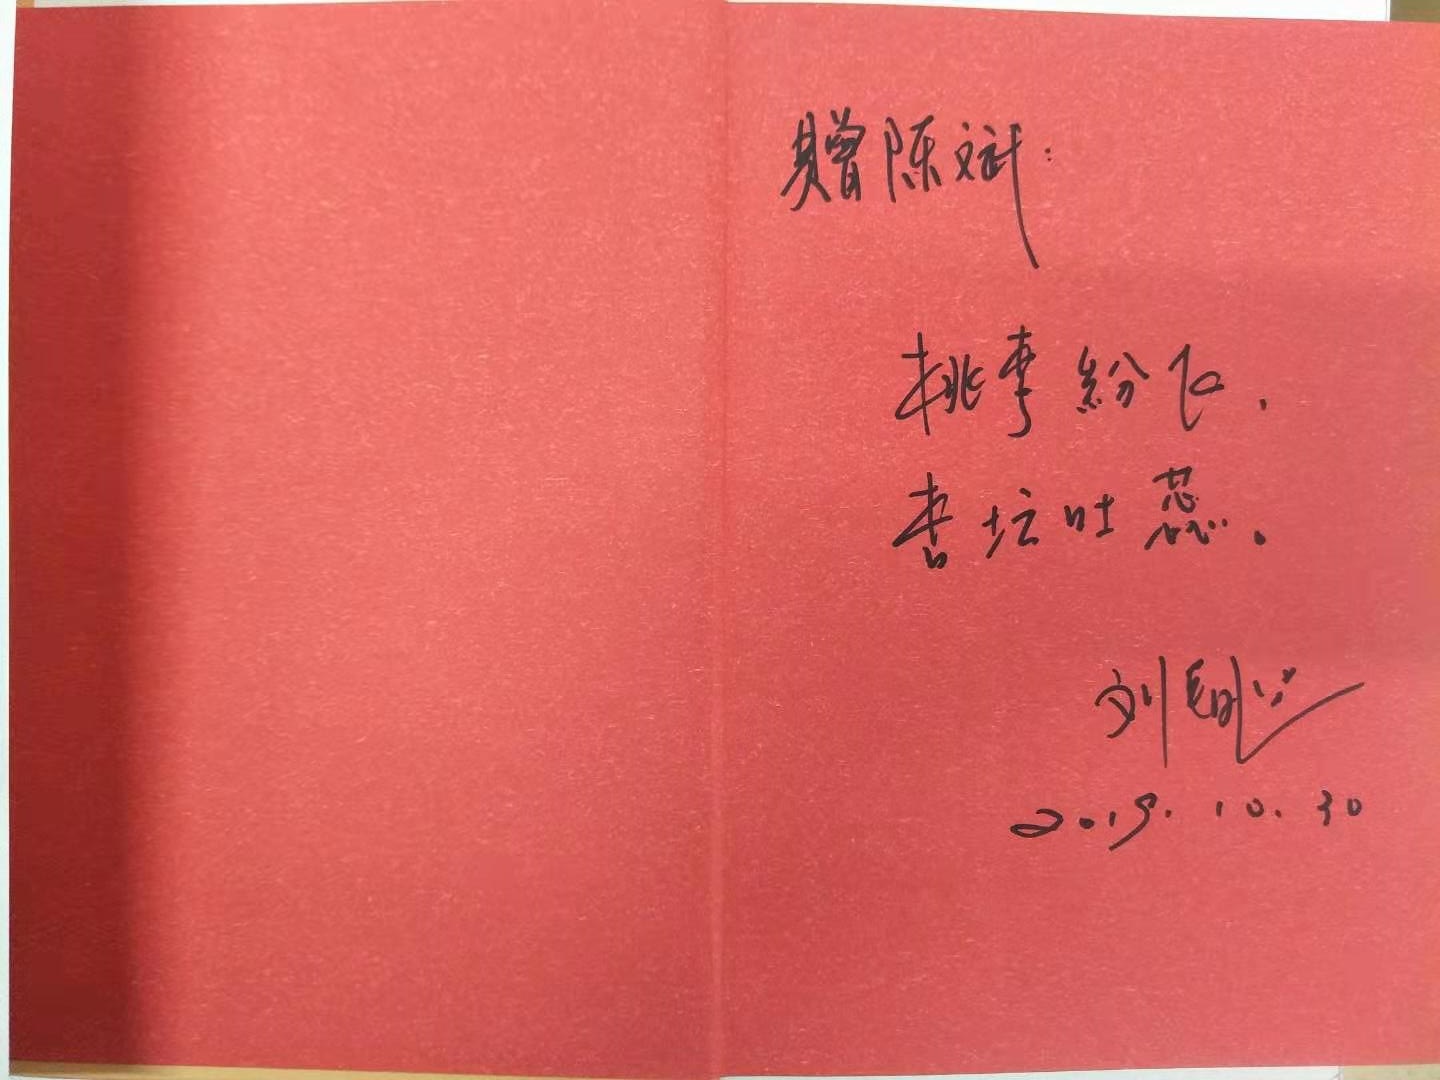 赠陈斌:
桃李纷飞,
杏坛吐蕊。
刘
2019.10.30